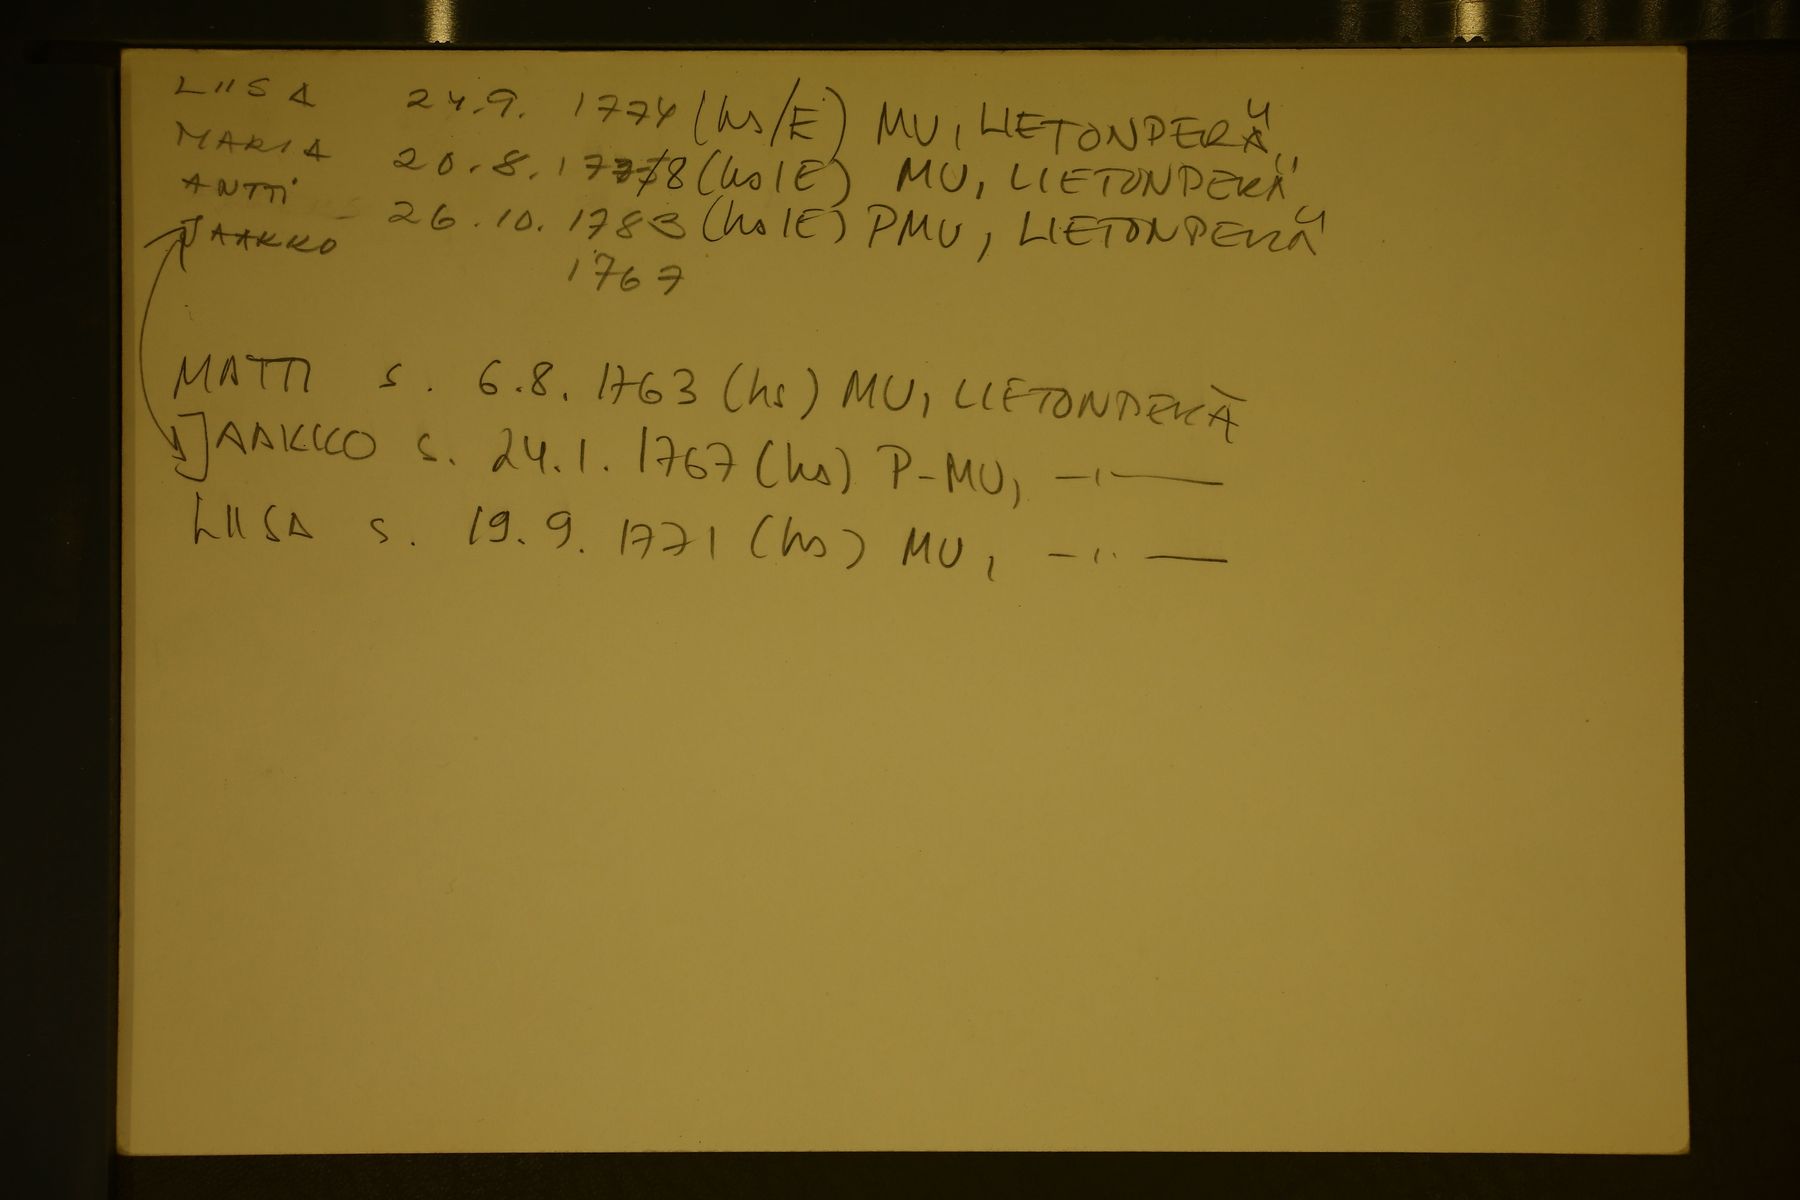 LIISA 24.9. 1774 (hs/E) MU, LIETONPERÄ
MARIA 20.8.1778 (hs/E) MU, LIETONPERÄ
ANTTI 26.10.1783 (hs/E) PMU, LIETONPERÄ
JAAKKO 1767
MATTI s. 6.8. 1763 (hs) MU, LIETONPERÄ
JAAKKO s. 24.1. 1767 (hs) P-MU, —"—
LIISA s. 19.9. 1771 (hs) MU, —"—